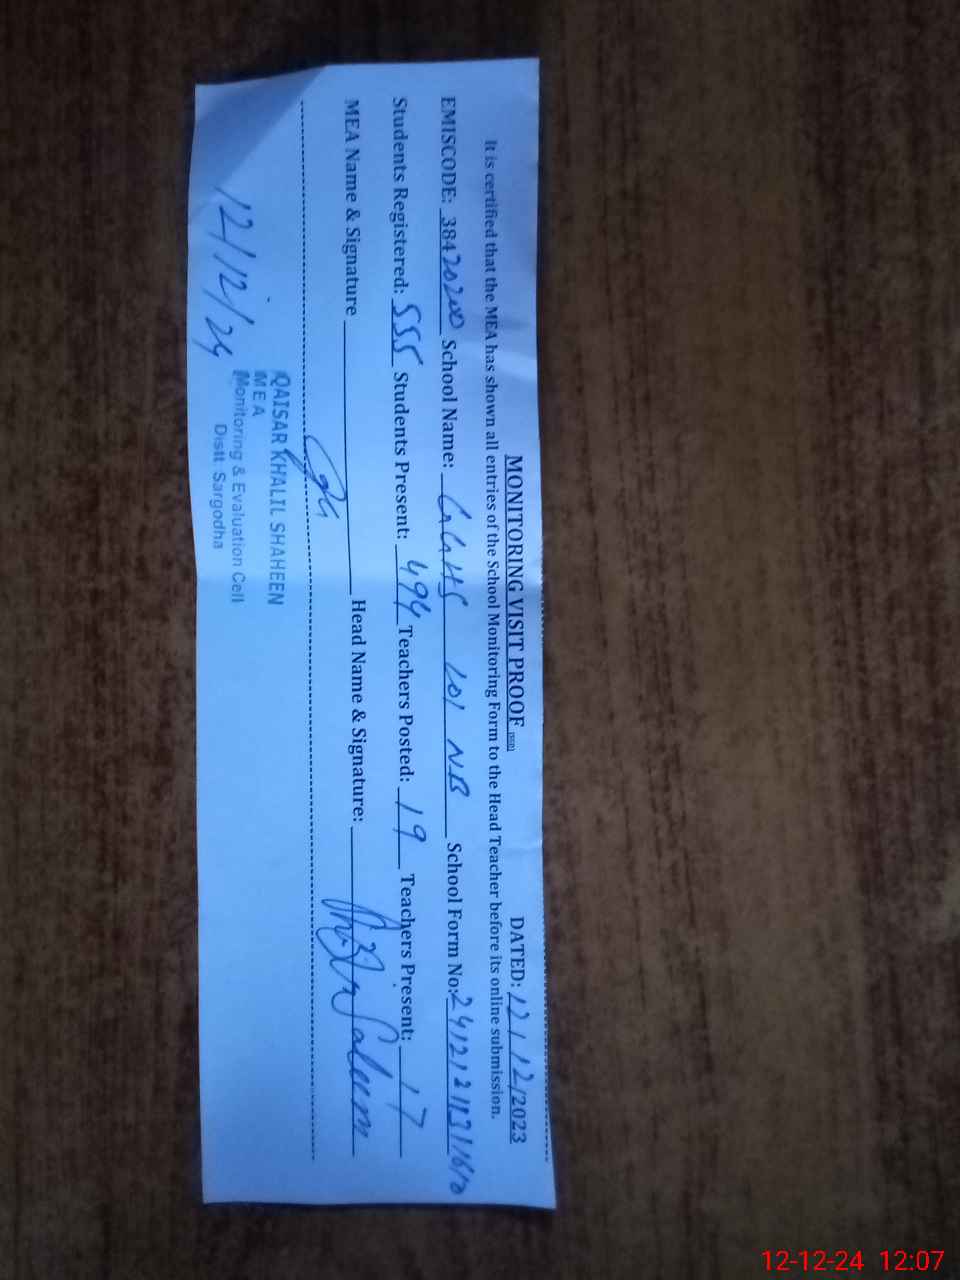 MONITORING VISIT PROOF (SGD) DATED: 12/12/2023
It is certified that the MEA has shown all entries of the School Monitoring Form to the Head Teacher before its online submission.
EMISCODE: 38420200 School Name: GGHS 101 NB School Form No:
Students Registered: 555 Students Present: 494 Teachers Posted: 19 Teachers Present: 17
MEA Name & Signature Head Name & Signature: Saleem
QAISAR KHALIL SHAHEEN
MEA
Monitoring & Evaluation Cell
Distt. Sargodha
12/12/24
12-12-24 12:07